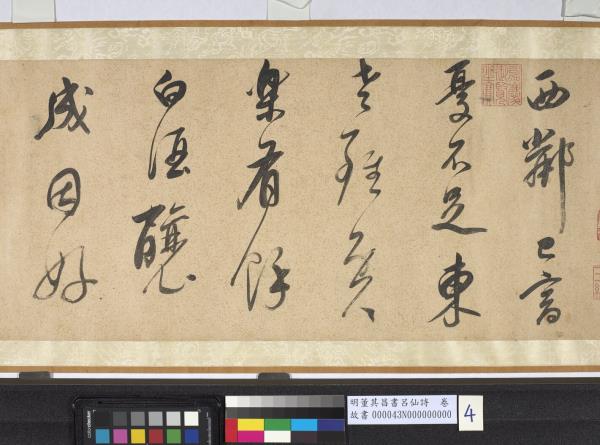 西鄰已富
憂不足東
老雖貧
樂有餘
白酒釀
成因好
明董其昌書呂仙詩 卷
故書 000043N000000000
4